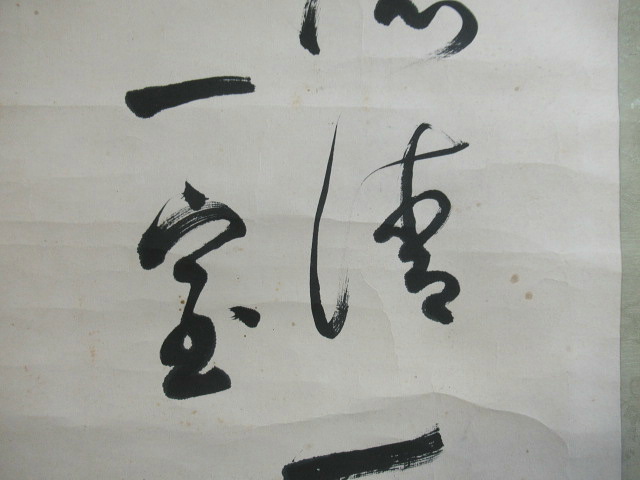 清一
一室